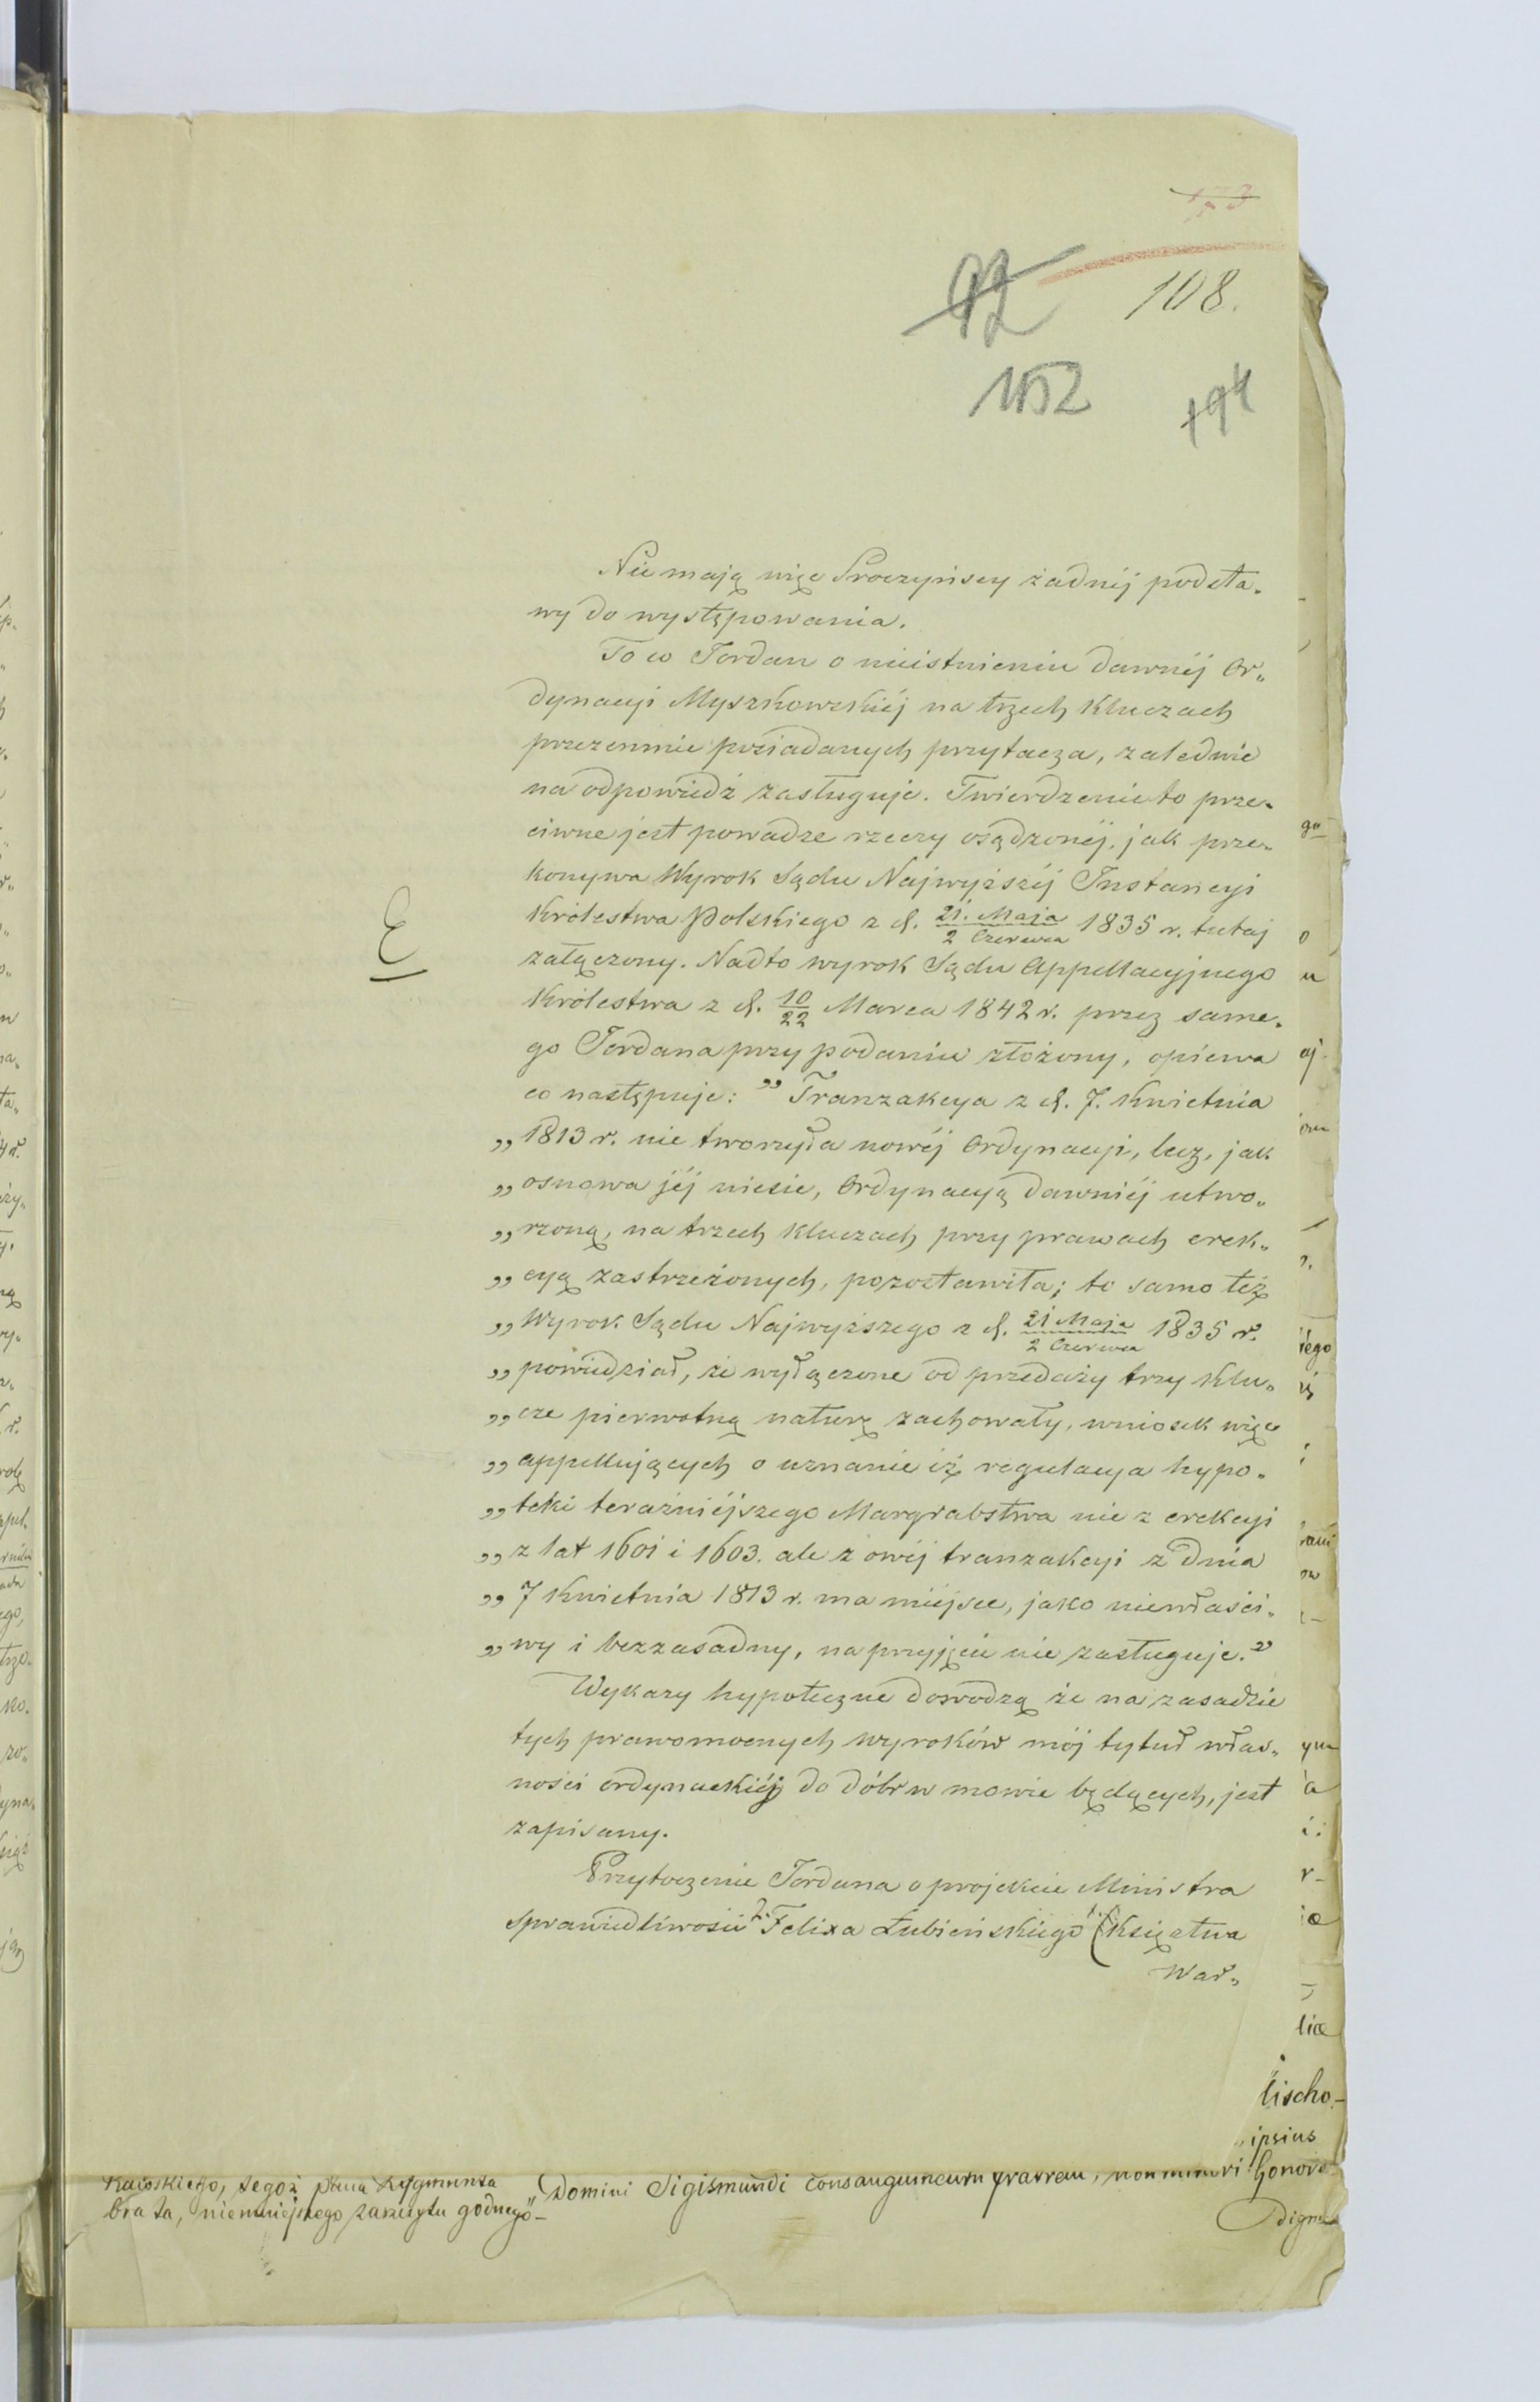 92
108.
152
194
Nie mają więc Proszyńscy żadnéj podsta„
wy do występowania.
To co Jordan o nieistnieniu dawnéj Or„
dynacyi Myszkowskiéj na trzech Kluczach
przezemnie posiadanych przytacza, zaledwie
na odpowiedź zasługuje. Twierdzenie to prze„
ciwne jest powadze rzeczy osądzonéj, jak prze„
konywa Wyrok Sądu Najwyższéj Instancyi
Królestwa Polskiego z d. 21. Maja / 2 Czerwca 1835 r. tutaj
E
załączony. Nadto wyrok Sądu Appellacyjnego
Królestwa z d. 10/22 Marca 1842 r. przez same„
go Jordana przy podaniu złożony, opiewa
co następuje: „Tranzakcya z d. 7. Kwietnia
„1813 r. nie tworzyła nowéj Ordynacyi, lecz, jak
„osnowa jéj niesie, Ordynacyą dawniéj utwo„
„rzoną, na trzech kluczach przy prawach erek„
„cyą zastrzeżonych, pozostawiła; to samo też
„Wyrok Sądu Najwyższego z d. 21 Maja / 2 Czerwca 1835 r.
„powiedział, że wyłączone od przedaży trzy klu„
„cze pierwotną naturę zachowały, wniosek więc
„appellujących o uznanie iż regulacya hypo„
„teki teraźniéjszego Margrabstwa nie z erekcyi
„z lat 1601 i 1603. ale z owéj tranzakcyi z dnia
„7 Kwietnia 1813 r. ma miéjsce, jako niewłaści„
„wy i bezzasadny, na przyjęcie nie zasługuje.”
Wykazy hypoteczne dowodzą że na zasadzie
tych prawomocnych wyroków mój tytuł włas„
ności ordynackiéj do dóbr w mowie będących, jest
zapisany.
Przytoczenie Jordana o projekcie Ministra
Sprawiedliwości 2. Felixa Łubieńskiego 1. (Księstwa
War„
lischo„
ipsius
tegoż pana Zygmunta
Domini Sigismundi consanguineum fratrem, non minori honore
brata, niemniéjszego zaszczytu godnego”